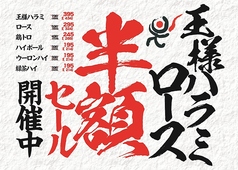 王様ハラミ
ロース
半額
セール
開催中
王様ハラミ 395
ロース 295
鶏トロ 245
ハイボール 195
ウーロンハイ 195
緑茶ハイ 195